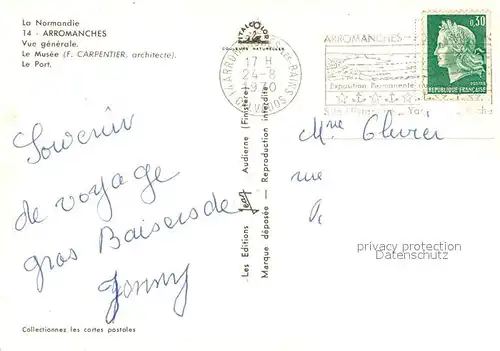 La Normandie
14 - ARROMANCHES
Vue générale.
Le Musée (F. CARPENTIER, architecte).
Le Port.
COULEURS NATURELLES
17 H
24-8
1970
ARROMANCHES
Exposition Permanente
0,30
POSTES
REPUBLIQUE FRANÇAISE
Souvenir
de voyage
gros Baisers de
Jenny
Les Editions Jean Audierne (Finistère)
Marque déposée — Reproduction interdite
Mme
rue
privacy protection
Datenschutz
Collectionnez les cartes postales